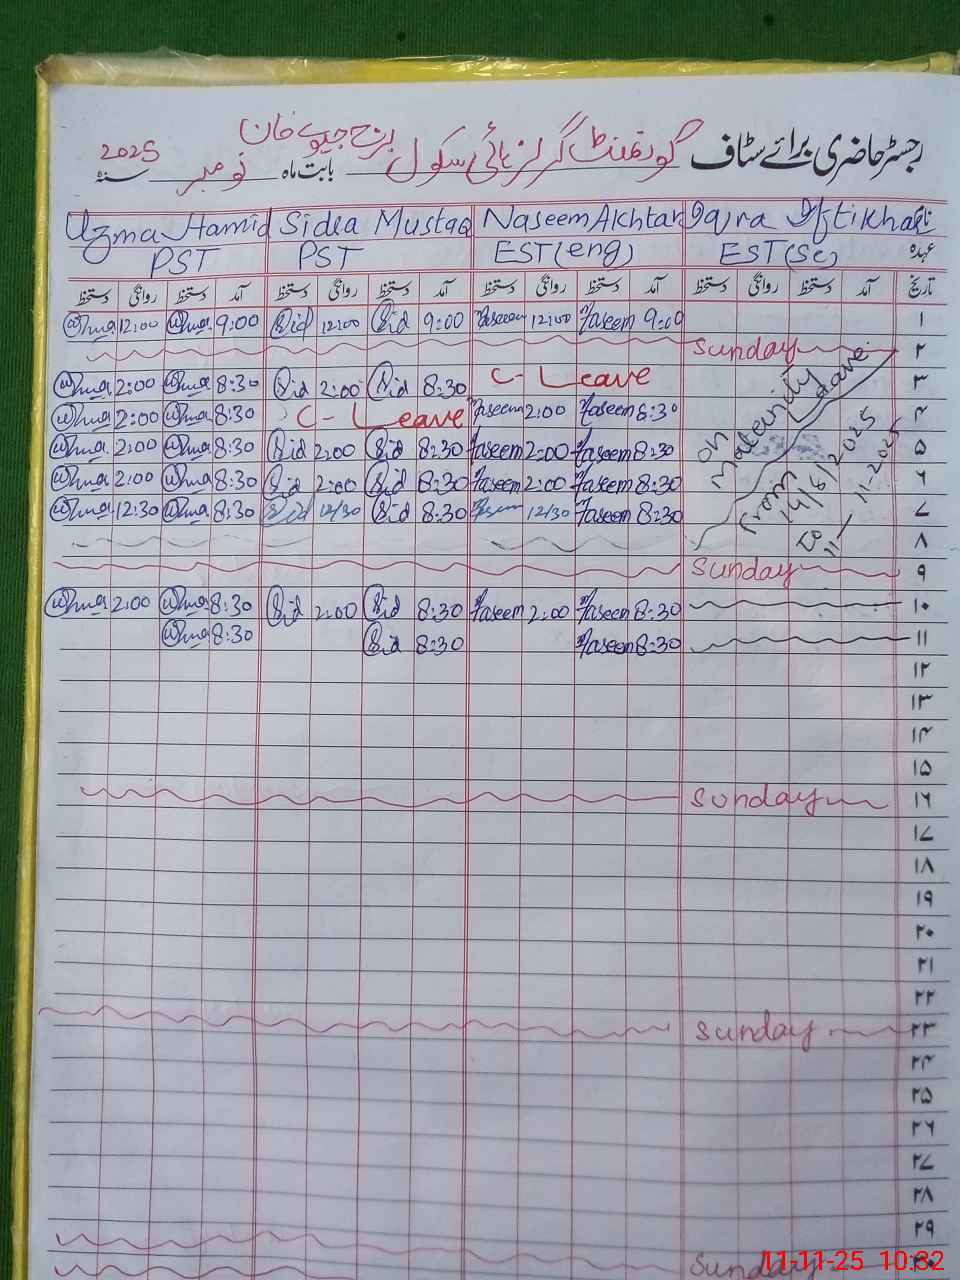 رجسٹر حاضری برائے سٹاف گورنمنٹ گرلز ہائی سکول برج جیوے خان بابت ماہ نومبر سنہ 2025
Uzma Hamid Sidra Mustaq Naseem Akhtar Iqra Iftikhar نام
PST PST EST(eng) EST(Sc) عہدہ
دستخط روانگی دستخط آمد دستخط روانگی دستخط آمد دستخط روانگی دستخط آمد دستخط روانگی دستخط آمد تاریخ
Uzma 12:00 Uzma 9:00 Sid 12:00 Sid 9:00 Naseem 12:00 Naseem 9:00 ۱
Sunday ۲
Uzma 2:00 Uzma 8:30 Sid 2:00 Sid 8:30 C- Leave ۳
Uzma 2:00 Uzma 8:30 C- Leave Naseem 2:00 Naseem 8:30 ۴
Uzma 2:00 Uzma 8:30 Sid 2:00 Sid 8:30 Naseem 2:00 Naseem 8:30 ۵
Uzma 2:00 Uzma 8:30 Sid 2:00 Sid 8:30 Naseem 2:00 Naseem 8:30 ۶
Uzma 12:30 Uzma 8:30 Sid 12/30 Sid 8:30 Naseem 12/30 Naseem 8:30 ۷
on
Maternity Leave
From
14/8/2025
to
11-11-2025
۸
Sunday ۹
Uzma 2:00 Uzma 8:30 Sid 2:00 Sid 8:30 Naseem 2:00 Naseem 8:30 ۱۰
Uzma 8:30 Sid 8:30 Naseem 8:30 ۱۱
۱۲
۱۳
۱۴
۱۵
Sunday ۱۶
۱۷
۱۸
۱۹
۲۰
۲۱
۲۲
Sunday ۲۳
۲۴
۲۵
۲۶
۲۷
۲۸
۲۹
Sunday ۳۰
11-11-25 10:32